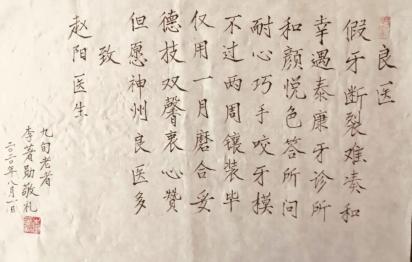 良医
假牙断裂难凑和
幸遇泰康牙诊所
和颜悦色答所问
耐心巧手咬牙模
不过两周镶装毕
仅用一月磨合妥
德技双馨衷心赞
但愿神州良医多
致
赵阳医生
九旬老者
李著勋敬礼